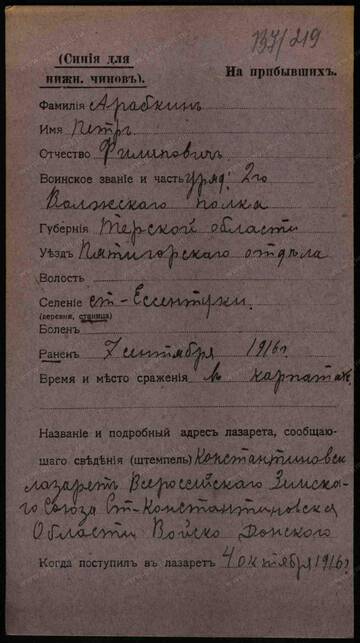 137/219
(Синія для
нижн. чиновъ).
На прибывшихъ.
Фамилія Арабкинъ
Имя Петръ
Отчество Филиповичъ
Воинское званіе и часть уряд. 2го
Волжского полка
Губернія Терской области
Уѣздъ Пятигорскаго отдѣла
Волость
Селеніе ст-Ессентуки.
(деревня, станица)
Боленъ
Раненъ 7 сентября 1916 г.
Время и мѣсто сраженія въ карпатахъ
Названіе и подробный адресъ лазарета, сообщаю-
щаго свѣдѣнія (штемпель) Константиновск
лазаретъ Всероссійскаго Земска-
го Союза Ст-Константиновская
Области Войско Донского
Когда поступилъ въ лазаретъ 4 октября 1916 г.